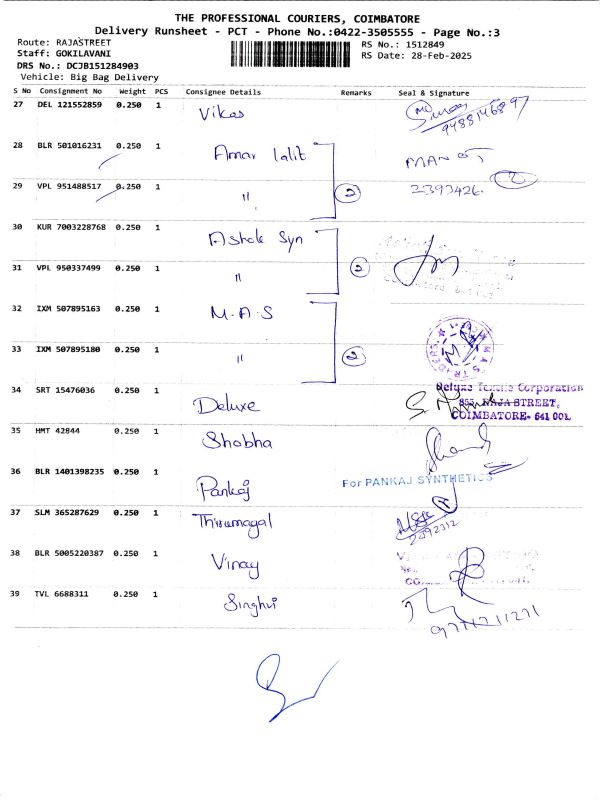 THE PROFESSIONAL COURIERS, COIMBATORE
Delivery Runsheet - PCT - Phone No.:0422-3505555 - Page No.:3
Route: RAJASTREET RS No.: 1512849
Staff: GOKILAVANI RS Date: 28-Feb-2025
DRS No.: DCJB151284903
Vehicle: Big Bag Delivery
S No Consignment No Weight PCS Consignee Details Remarks Seal & Signature
27 DEL 121552859 0.250 1 Vikas 9488146897
28 BLR 501016231 0.250 1 Amar lalit MANOJ
29 VPL 951488517 0.250 1 " 2 2393426. 2
30 KUR 7003228768 0.250 1 Ashok Syn
31 VPL 950337499 0.250 1 " 2
32 IXM 507895163 0.250 1 M.A.S
33 IXM 507895180 0.250 1 " 2
34 SRT 15476036 0.250 1 Deluxe Deluxe Textile Corporation
855, RAJA STREET,
COIMBATORE- 641 001.
35 HMT 42844 0.250 1 Shobha
36 BLR 1401398235 0.250 1 Pankaj For PANKAJ SYNTHETICS
37 SLM 365287629 0.250 1 Thirumagal 2392312
38 BLR 5005220387 0.250 1 Vinay
39 TVL 6688311 0.250 1 Singhvi 9771211271